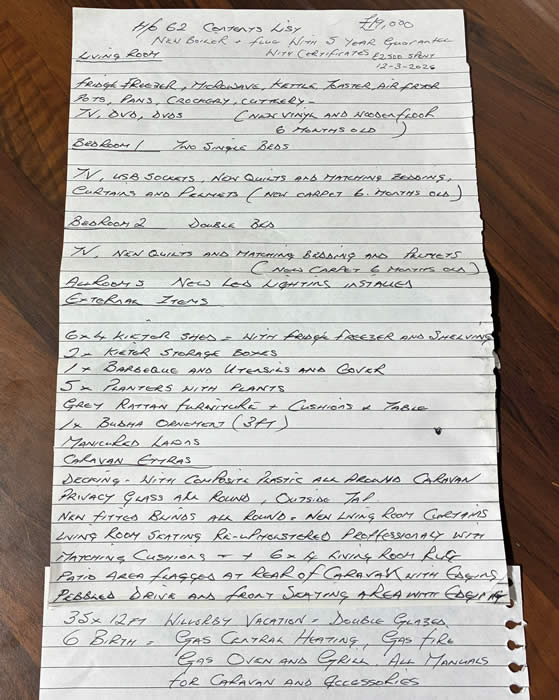 H/6 62 CONTENTS LIST £19,000
NEW BOILER + FLUE WITH 5 YEAR GUARANTEE
LIVING ROOM WITH CERTIFICATES £2500 SPENT
12-3-2026
FRIDGE FREEZER, MICROWAVE, KETTLE, TOASTER, AIR FRYER
POTS, PANS, CROCKERY, CUTTLERY -
TV, DVD, DVDS (NEW VINYL AND WOODEN FLOOR
6 MONTHS OLD )
BEDROOM 1 TWO SINGLE BEDS
TV, USB SOCKETS, NEW QUILTS AND MATCHING BEDDING,
CURTAINS AND PELMETS (NEW CARPET 6 MONTHS OLD)
BEDROOM 2 DOUBLE BED
TV, NEW QUILTS AND MATCHING BEDDING AND PELMETS
(NEW CARPET 6 MONTHS OLD)
ALL ROOMS NEW LED LIGHTING INSTALLED
EXTERNAL ITEMS
6x4 KIETOR SHED = WITH FRIDGE FREEZER AND SHELVING
2x KIETOR STORAGE BOXES
1x BARBEQUE AND UTENSILS AND COVER
5x PLANTERS WITH PLANTS
GREY RATTAN FURNITURE + CUSHIONS & TABLE
1x BUDHA ORNEMENT (3FT)
MANICURED LAWNS
CARAVAN EXTRAS
DECKING - WITH COMPOSITE PLASTIC ALL AROUND CARAVAN
PRIVACY GLASS ALL ROUND, OUTSIDE TAP
NEW FITTED BLINDS ALL ROUND = NEW LIVING ROOM CURTAINS
LIVING ROOM SEATING RE-UPHOLSTERED PROFFESSIONALY WITH
MATCHING CUSHIONS - + 6x4 LIVING ROOM RUG
PATIO AREA FLAGGED AT REAR OF CARAVAN WITH EDGING
PEBBLED DRIVE AND FRONT SEATING AREA WITH EDGING
35x12FT WILLORBY VACATION = DOUBLE GLAZED
6 BIRTH = GAS CENTRAL HEATING, GAS FIRE
GAS OVEN AND GRILL. ALL MANUALS
FOR CARAVAN AND ACCESSORIES